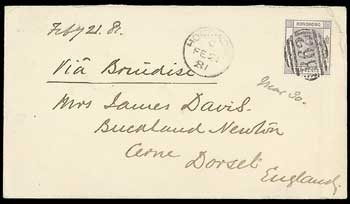 Feby 21. 81.
HONG KONG
FE 21
81
HONGKONG
Via Brindisi
Mar 30.
Mrs James Davis.
Buckland Newton
Cerne Dorset
England